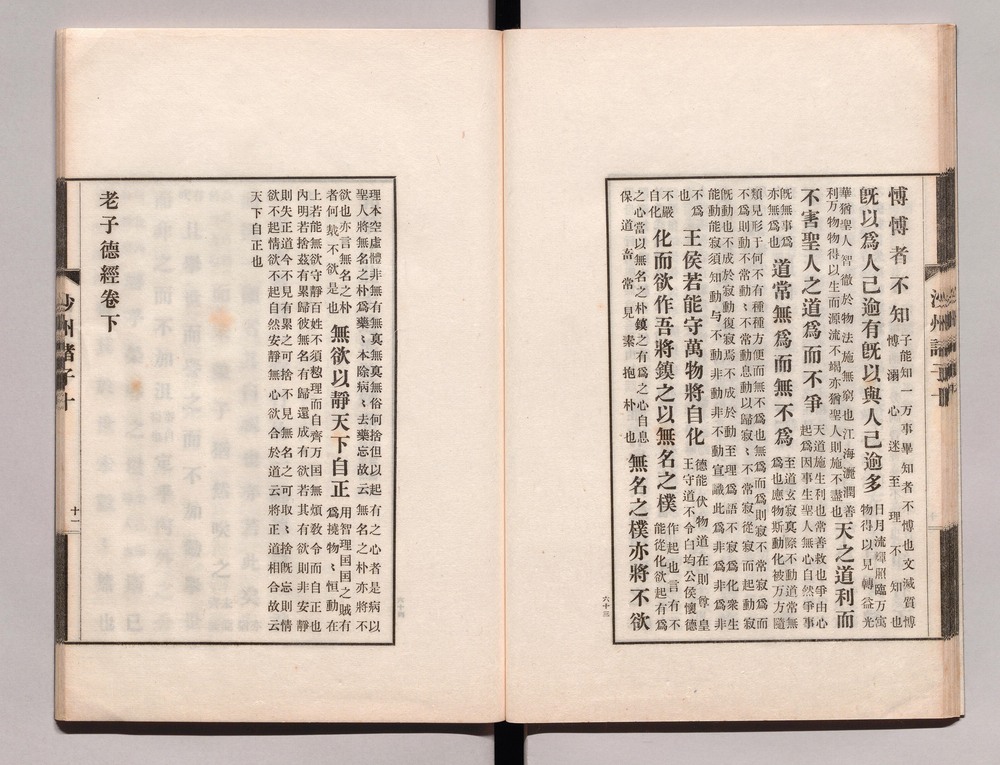 愽愽者不知
子能知一万事畢知者不愽也文減質愽
愽溺心迷至理不知也
旣以爲人己逾有旣以與人己逾多
日月流輝照臨万㝢
物得以見轉益光
華猶聖人智徹於物法施無窮也江海灑潤善
利万物物得以生而源流不竭亦猶聖人則施不盡也
天之道利而
不害聖人之道爲而不爭
天道施生利也常善救也爭由心
起爲因事生聖人無心自然爭事
旣無事爲
亦無爲也
道常無爲而無不爲
至道玄寂真際不動道常無
爲也應物斯動化被万方隨
類見形于何不有種種方便而無不爲也無爲而爲則寂不常寂爲而
不爲則動不常動〻不常動息動以歸寂〻不常寂從寂而起動寂
旣動也不成於寂動復寂焉不成於動至理爲語不寂爲化衆生
能動能寂須知動与不動非動非不動宣識此爲非寂非不寂爲而
不爲
也
王侯若能守萬物將自化
德能伏物道在則尊皇
王守道不令白均公侯懷德
不嚴
自化
化而欲作吾將鎭之以無名之樸
作起也言有不
能從化欲起有爲
之心當以無名之朴鎭之有爲之心自息
保道畜常見素抱朴也
無名之樸亦將不欲
六十三
理本空虛體非無有無真無俗何捨但以起有之心者是病以
聖人將無名之朴爲藥〻本除病〻去藥忘故云無名之朴亦將不
欲也亦言無名之朴
者何㢤不欲是也
無欲以靜天下自正
用智理国国之賊有
爲撓物〻恒動在
上若能無欲守靜百姓不須懃理而自齊万国無煩教令而自正也
內明若捨茲有累歸彼無名有歸還成有欲若其有欲則非安靜
則失正道今不見有累之可捨不見無名之可取〻捨旣忘則情
欲不起情欲不起自然安靜無心欲合於道云將正道相合故云
天下自正也
老子德經卷下
沙州諸子十
十一
六十四